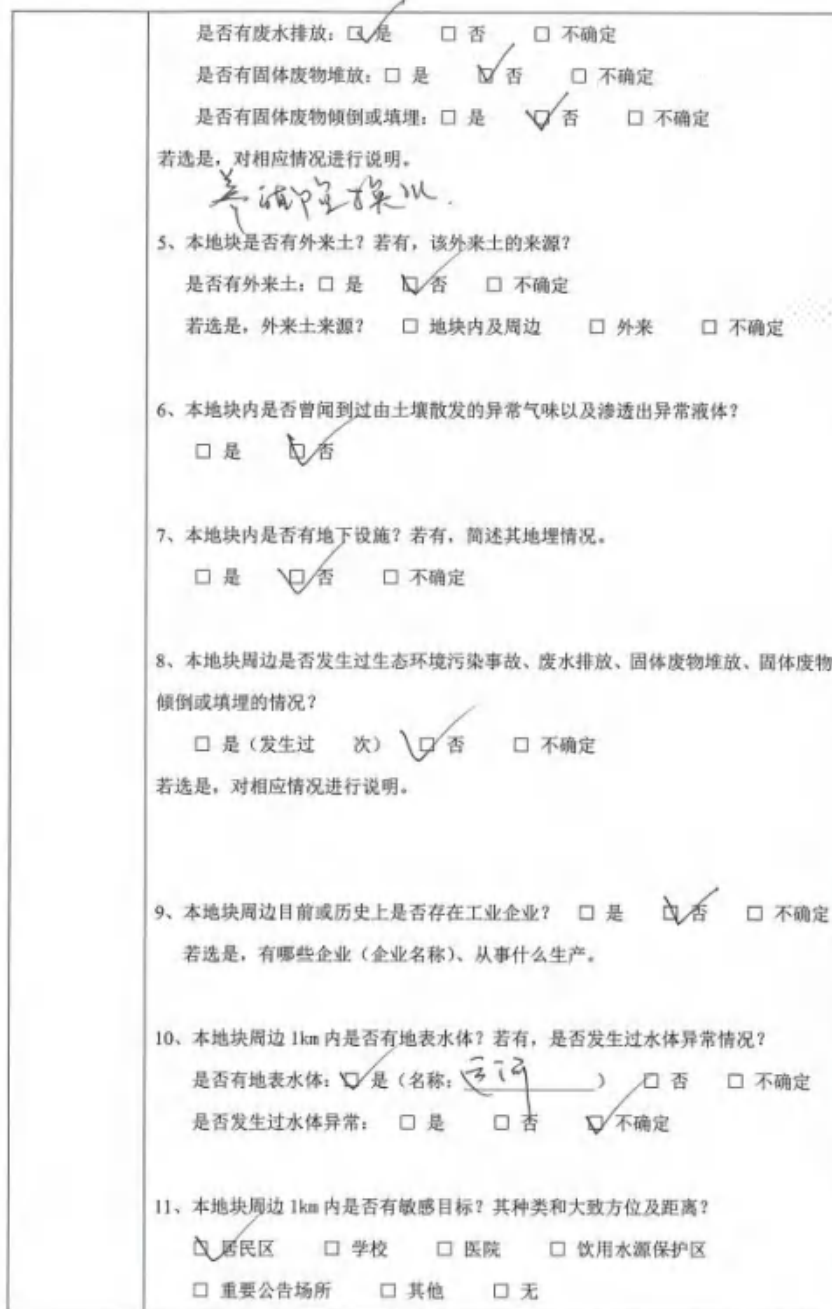 是否有废水排放：☑ 是 □ 否 □ 不确定
是否有固体废物堆放：□ 是 ☑ 否 □ 不确定
是否有固体废物倾倒或填埋：□ 是 ☑ 否 □ 不确定
若选是，对相应情况进行说明。
养殖 换水.
5、本地块是否有外来土？若有，该外来土的来源？
是否有外来土：□ 是 ☑ 否 □ 不确定
若选是，外来土来源？ □ 地块内及周边 □ 外来 □ 不确定
6、本地块内是否曾闻到过由土壤散发的异常气味以及渗透出异常液体？
□ 是 ☑ 否
7、本地块内是否有地下设施？若有，简述其地埋情况。
□ 是 ☑ 否 □ 不确定
8、本地块周边是否发生过生态环境污染事故、废水排放、固体废物堆放、固体废物
倾倒或填埋的情况？
□ 是（发生过 次） ☑ 否 □ 不确定
若选是，对相应情况进行说明。
9、本地块周边目前或历史上是否存在工业企业？ □ 是 ☑ 否 □ 不确定
若选是，有哪些企业（企业名称）、从事什么生产。
10、本地块周边 1km 内是否有地表水体？若有，是否发生过水体异常情况？
是否有地表水体：☑ 是（名称：运河） □ 否 □ 不确定
是否发生过水体异常： □ 是 □ 否 ☑ 不确定
11、本地块周边 1km 内是否有敏感目标？其种类和大致方位及距离？
☑ 居民区 □ 学校 □ 医院 □ 饮用水源保护区
□ 重要公告场所 □ 其他 □ 无